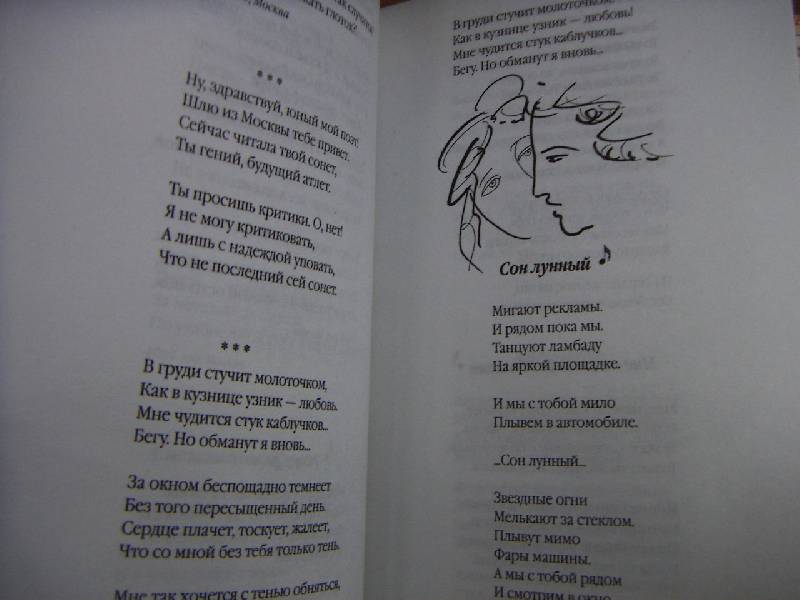 Москва
***
Ну, здравствуй, юный мой поэт!
Шлю из Москвы тебе привет.
Сейчас читала твой сонет,
Ты гений, будущий атлет.
Ты просишь критики. О, нет!
Я не могу критиковать,
А лишь с надеждой уповать,
Что не последний сей сонет.
***
В груди стучит молоточком,
Как в кузнице узник — любовь.
Мне чудится стук каблучков...
Бегу. Но обманут я вновь...
За окном беспощадно темнеет
Без того пересыщенный день.
Сердце плачет, тоскует, жалеет,
Что со мной без тебя только тень.
Мне так хочется с тенью обняться,
В груди стучит молоточком,
Как в кузнице узник — любовь!
Мне чудится стук каблучков...
Бегу. Но обманут я вновь...
Сон лунный
Мигают рекламы.
И рядом пока мы.
Танцуют ламбаду
На яркой площадке.
И мы с тобой мило
Плывем в автомобиле.
...Сон лунный...
Звездные огни
Мелькают за стеклом.
Плывут мимо
Фары машины.
А мы с тобой рядом
И смотрим в окно